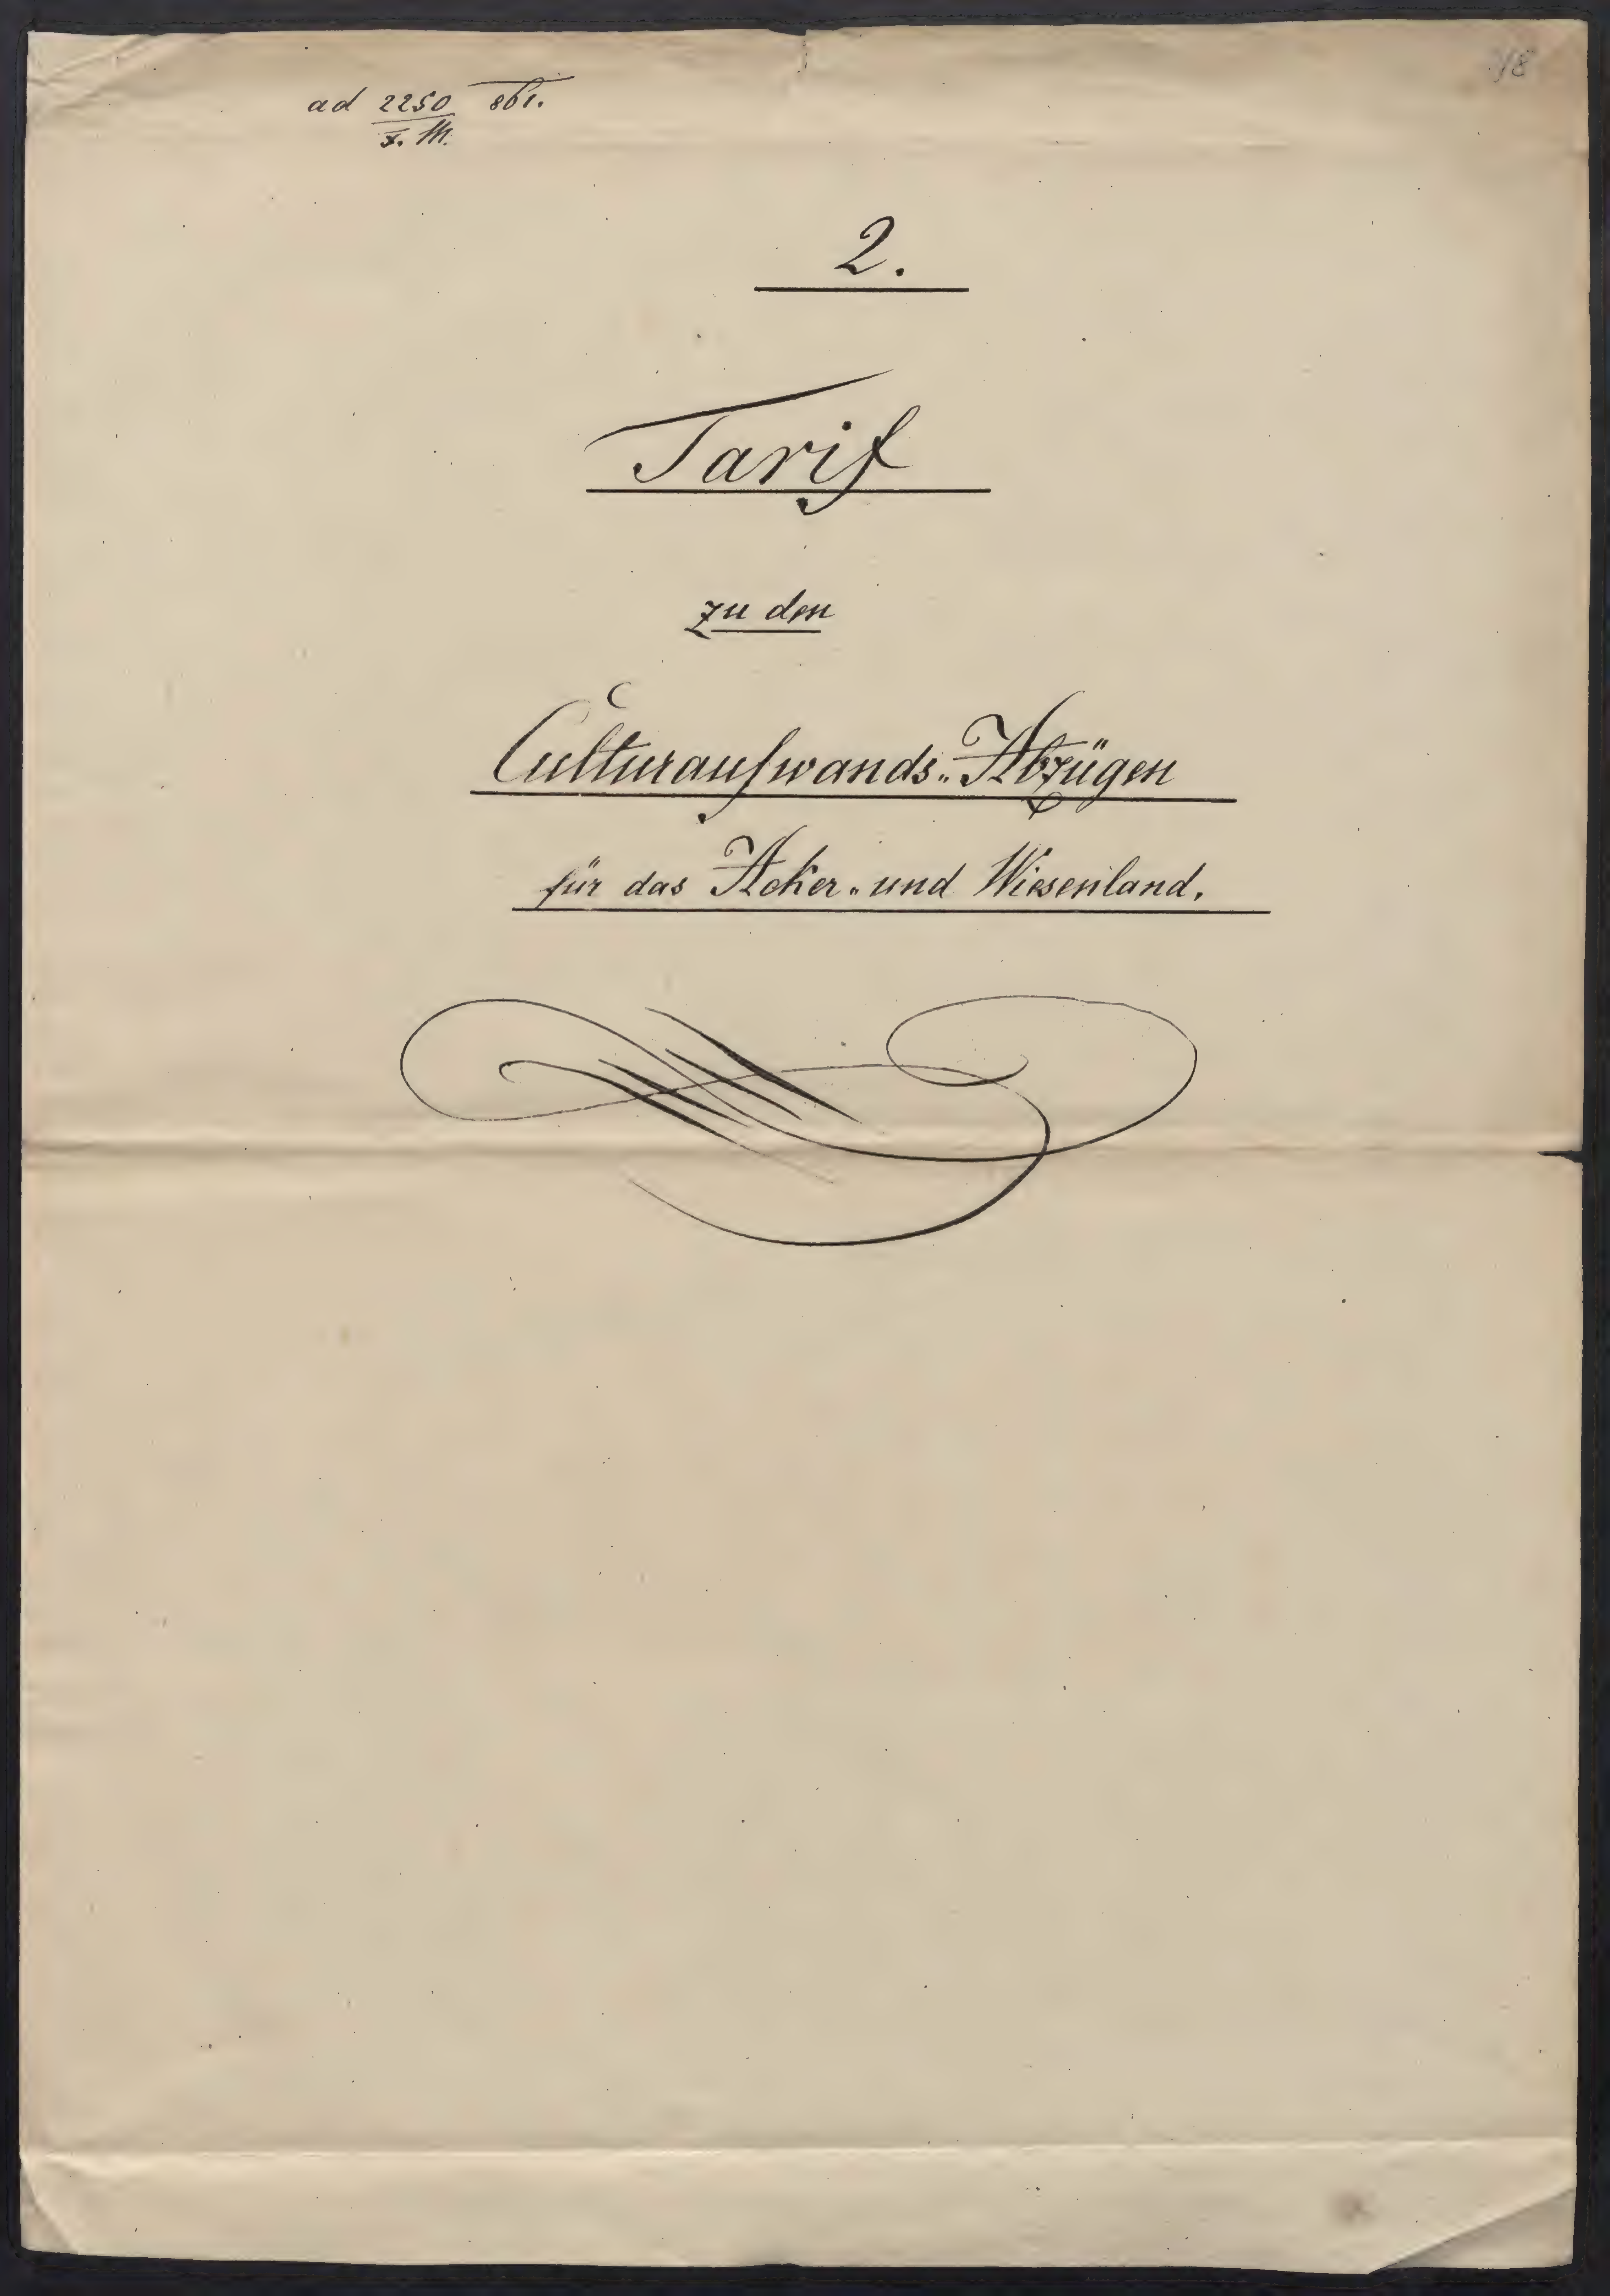 ad 2250 861.
F. M.
2.
Tarif
zu den
Culturaufwands-Abzügen
für das Acker- und Wiesenland.